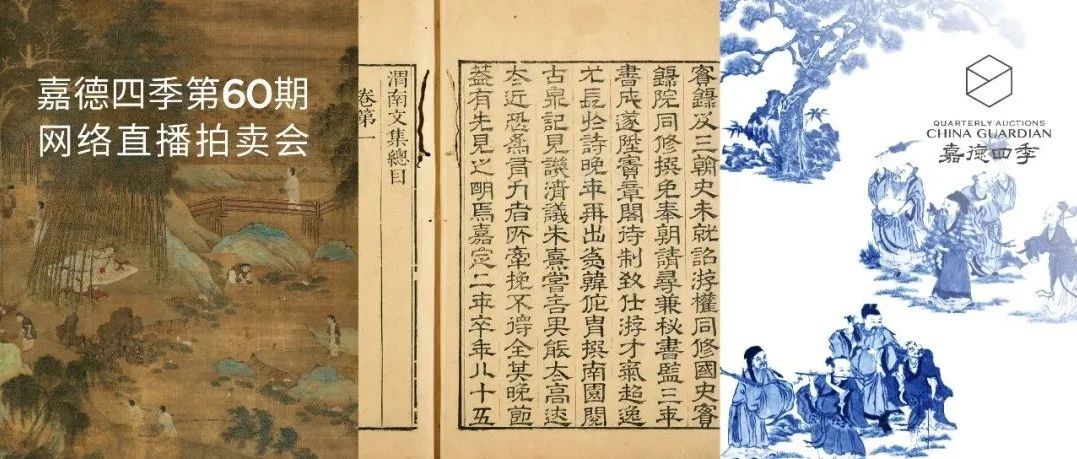 嘉德四季第60期
网络直播拍卖会
QUARTERLY AUCTIONS
CHINA GUARDIAN
嘉德四季
實錄及三朝史未就詔游權同修國史實
錄院同修撰免奉朝請尋兼秘書監三年
書成遂陞寶章閣待制致仕游才氣超逸
尤長於詩晚年再出為韓侂胄撰南園閱
古泉記見譏清議朱熹嘗言其能太高迹
太近恐為有力者所牽挽不得全其晚節
蓋有先見之明焉嘉定二年卒年八十五
渭南文集總目
卷第一